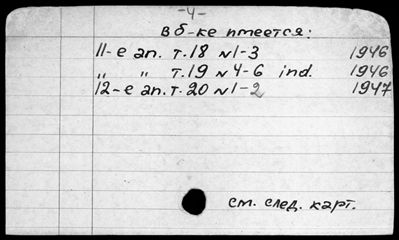 -4-
в б-ке имеется:
11-е ап. т.18 N1-3 1946
„ „ т.19 N4-6 ind. 1946
12-е ап. т.20 N1-2 1947
см. след. карт.